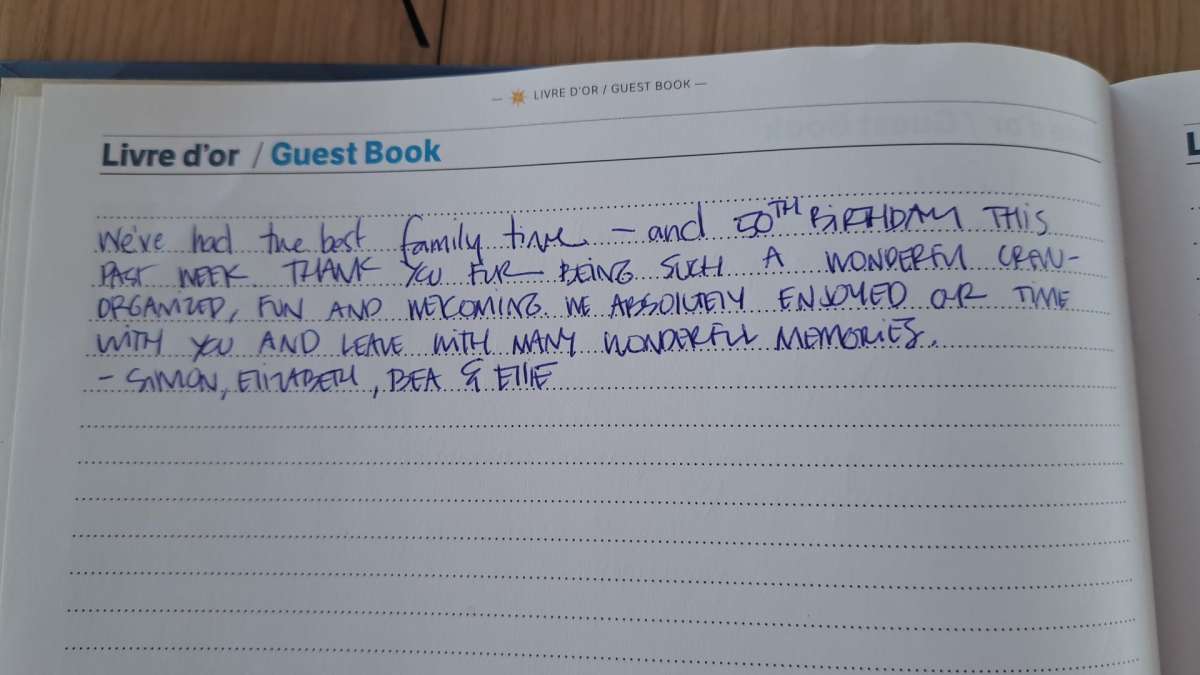 — LIVRE D'OR / GUEST BOOK —
Livre d'or / Guest Book
We've had the best family time – and 50TH BIRTHDAY THIS
PAST WEEK. THANK YOU FUR BEING SUCH A WONDERFUL CREW-
ORGANIZED, FUN AND WELCOMING. WE ABSOLUTELY ENJOYED OUR TIME
WITH YOU AND LEAVE WITH MANY WONDERFUL MEMORIES.
- SIMON, ELIZABETH, BEA & ELLIE
L